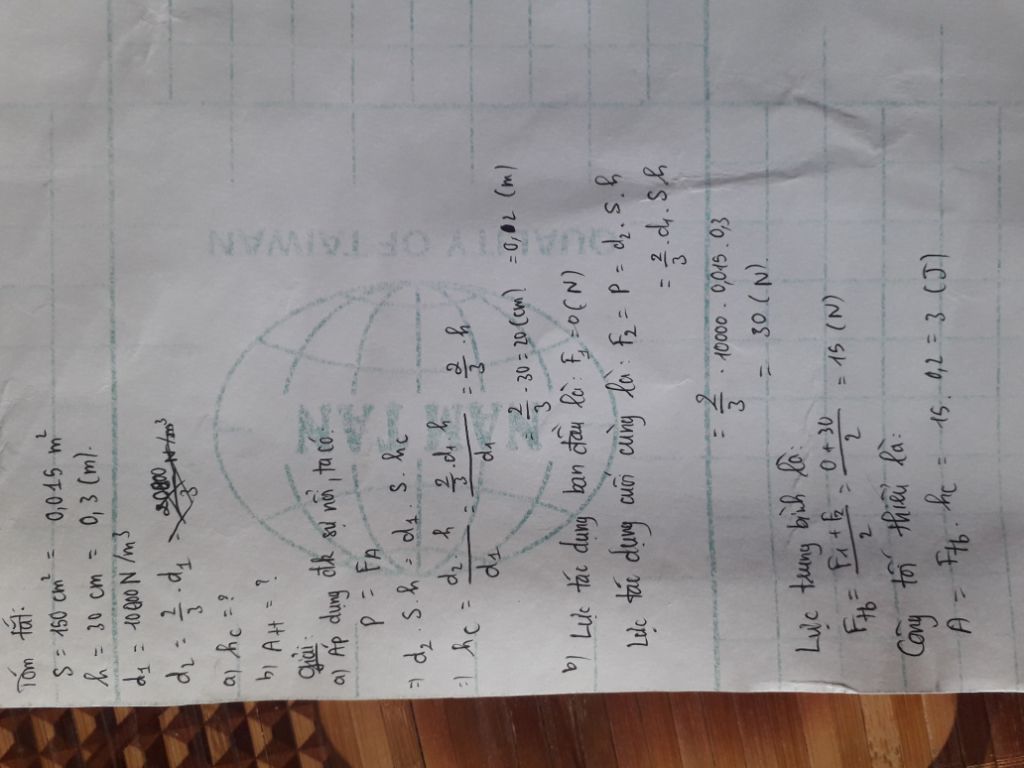 Tóm tắt:
S = 150 cm² = 0,015 m²
h = 30 cm = 0,3 (m).
d₁ = 10000 N/m³
d₂ = 2/3 . d₁
a) hc = ?
b) A = ?
Giải:
a) Áp dụng đk sự nổi, ta có:
P = FA
=> d₂ . S . h = d₁ . S . hc
=> hc = d₂ . h / d₁ = 2/3 . d₁ . h / d₁ = 2/3 . h
= 2/3 . 30 = 20 (cm) = 0,2 (m)
b) Lực tác dụng ban đầu là: F₁ = 0 (N)
Lực tác dụng cuối cùng là: F₂ = P = d₂ . S . h
= 2/3 . d₁ . S . h
= 2/3 . 10000 . 0,015 . 0,3
= 30 (N)
Lực trung bình là:
Ftb = F₁ + F₂ / 2 = 0 + 30 / 2 = 15 (N)
Công tối thiểu là:
A = Ftb . hc = 15 . 0,2 = 3 (J)
QUALITY OF TAIWAN